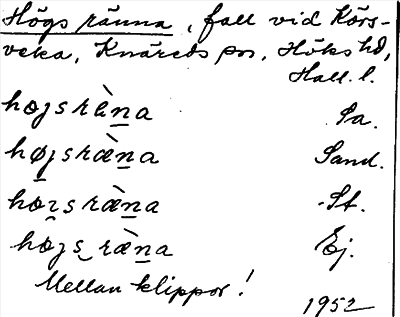 Högs ränna, fall vid Körs-
veka, Knäreds sn, Höks hd,
Hall. l.
hœjsræ̀na Sa.
højsræ̀na Sand.
hœɪsræ̀na St.
hœjsræ̀na Ej.
Mellan klippor!
1952